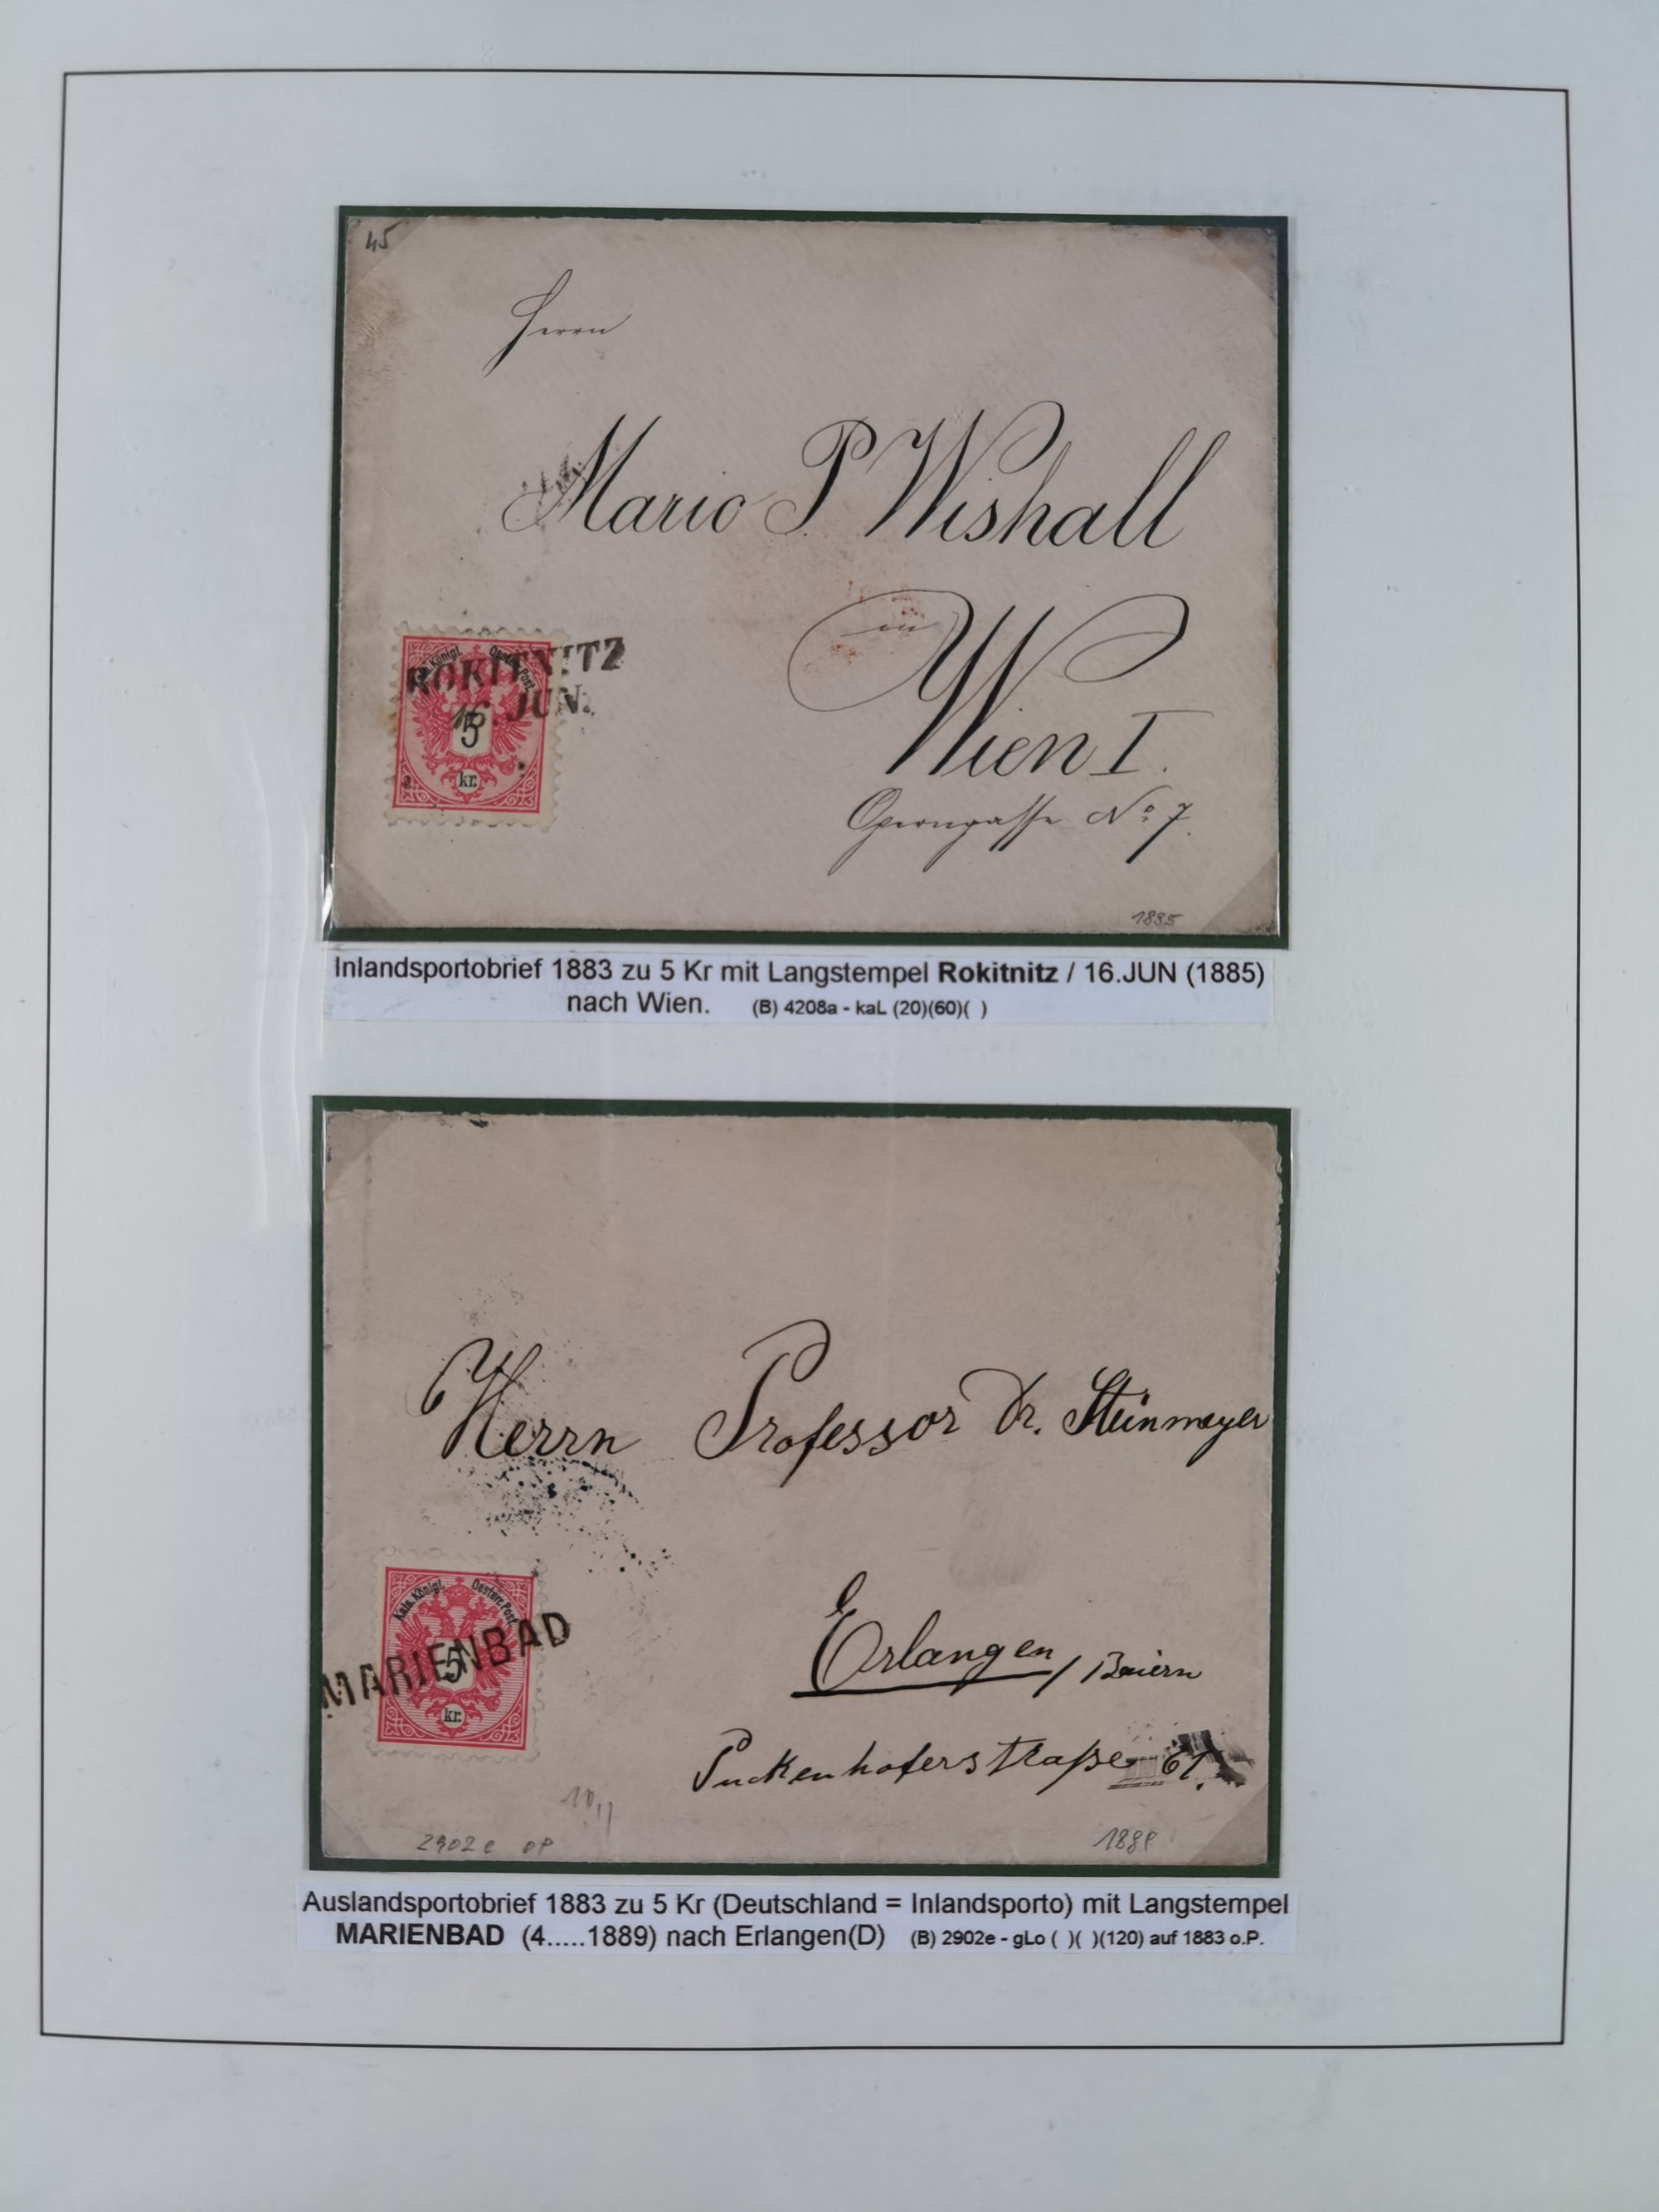 45
Herrn
Mario P Wishall
in
Wien I.
Operngasse No 7.
ROKITNITZ
16. JUN.
Kais. Königl. Oesterr. Post.
5
kr.
Inlandsportobrief 1883 zu 5 Kr mit Langstempel Rokitnitz / 16.JUN (1885)
nach Wien. (B) 4208a - kaL (20)(60)( )
Herrn Professor Dr. Steinmeyer
Erlangen / Baiern
Puckenhoferstraße
Kais. Königl. Oesterr. Post.
MARIENBAD
5
kr.
2902e oP
Auslandsportobrief 1883 zu 5 Kr (Deutschland = Inlandsporto) mit Langstempel
MARIENBAD (4.....1889) nach Erlangen(D) (B) 2902e - gLo ( )( )(120) auf 1883 o.P.